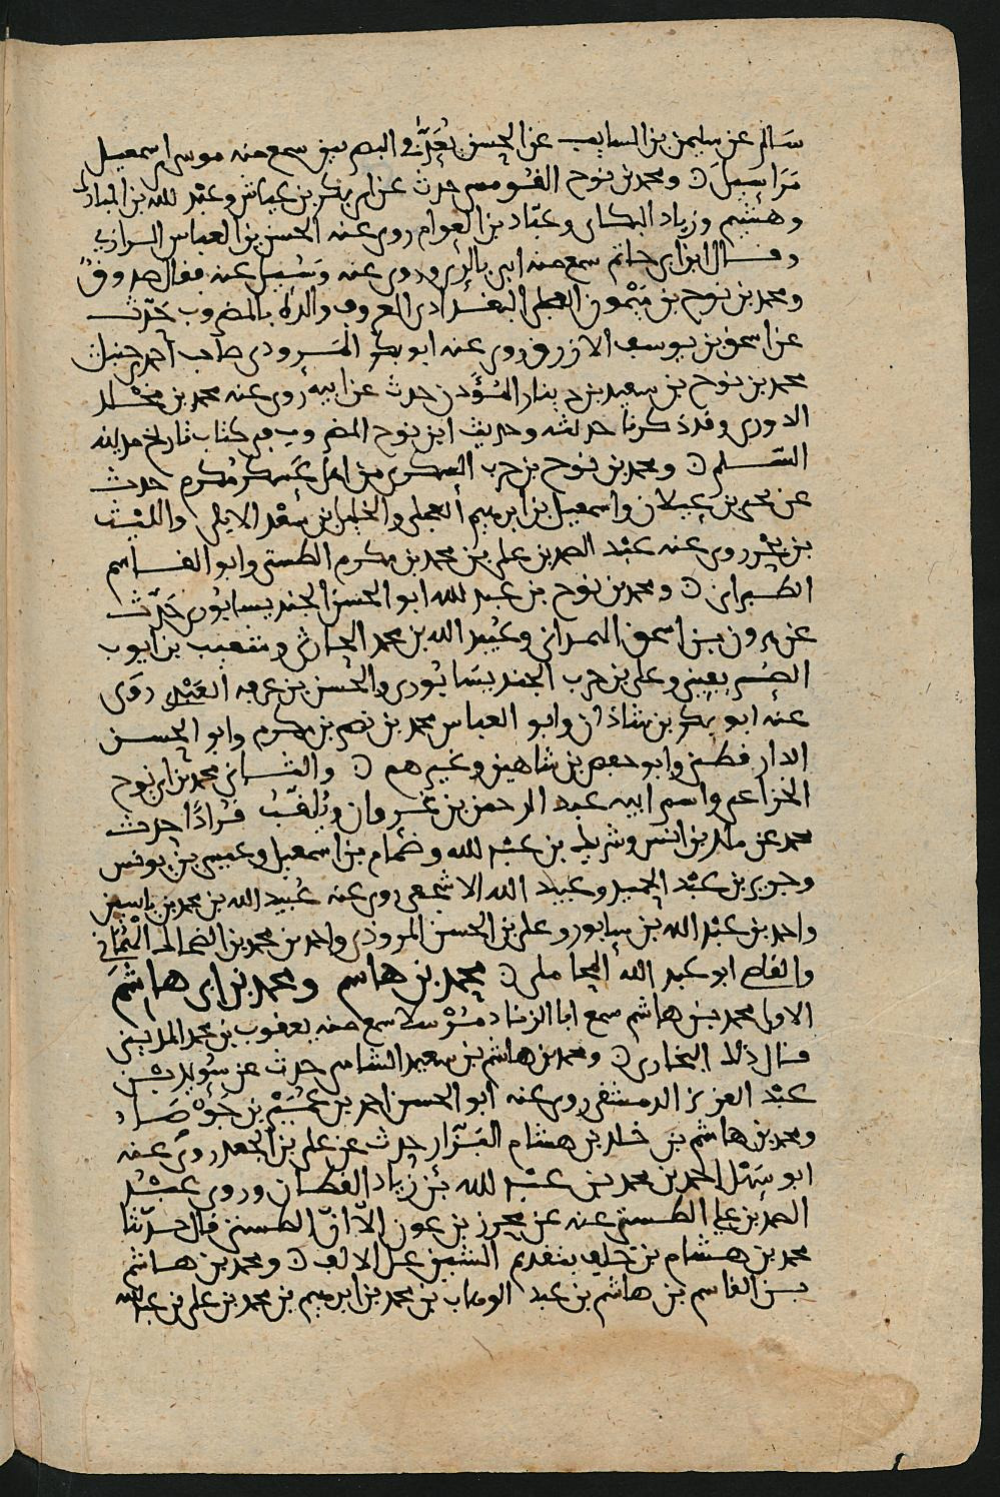 سالم عن سليمن بن السايب عن الحسن يعد في البصريين سمع منه موسى بن اسمعيل
مراسيل ومحمد بن نوح القومسي حدث عن ابي بكر بن عياش وعبد الله بن المبارك
وهشيم وزياد البكاى وعباد بن العوام روى عنه الحسن بن العباس الرازي
وقال ابن ابي حاتم سمع منه ابي بالري وروى عنه وسئل عنه فقال صدوق
ومحمد بن نوح بن ميمون العجلي البغدادي المعروف والده بالمضروب حدث
عن اسحق بن يوسف الازرق روى عنه ابو بكر المروذي صاحب احمد بن حنبل
محمد بن نوح بن سعيد بن دينار المؤذن حدث عن ابيه روى عنه محمد بن مخلد
الدوري وقد ذكرنا حديثه وحديث ابن نوح المضروب في كتاب تاريخ مدينة
السلم ومحمد بن نوح بن حرب العسكري من اهل عسكر مكرم حدث
عن يحيى بن غيلان واسمعيل بن ابرهيم العجلي والخليل بن سعد الايلي والليث
بن روى عنه عبد الصمد بن علي بن محمد بن مكرم الطستي وابو القاسم
الطبراني ومحمد بن نوح بن عبد الله ابو الحسن الجنديسابوري حدث
عن هرون بن اسحق الهمداني وعبيد الله بن محمد الحارثي وشعيب بن ايوب
الصريفيني وعلي بن حرب الجنديسابوري والحسن بن عرفه العبدي روى
عنه ابو بكر بن شاذان وابو العباس محمد بن نصر بن مكرم وابو الحسن
الدارقطني وابو حفص بن شاهين وغيرهم والثاني محمد بن ابي نوح
الخزاعي واسم ابيه عبد الرحمن بن غزوان ويلقب قرادا حدث
محمد عن ملك بن انس وشريك بن عبد الله وضمام بن اسمعيل وعيسى بن يونس
وجرير بن عبد الحميد وعبيد الله الاشجعي روى عنه عبيد الله بن محمد بن ياسين
واحمد بن عبد الله بن سابور وعلي بن الحسن المروذي واحمد بن محمد بن الضحاك العثماني
والقاضي ابو عبد الله المحاملي محمد بن هاشم ومحمد بن ابي هاشم
الاول محمد بن هاشم سمع ابا الزناد مرسلا سمع منه يعقوب بن محمد المديني
قال ذلك البخاري ومحمد بن هاشم بن سعيد الشامي حدث عن سويد بن
عبد العزيز الدمشقي روى عنه ابو الحسن احمد بن عمير بن جوصا
ومحمد بن هاشم بن خلد بن هشام البزار حدث عن علي بن الجعد روى عنه
ابو سهل احمد بن محمد بن عبد الله بن زياد القطان وروى عبد
الصمد بن علي الطستي عنه عن محرز بن عون الا ان الطستي قال حدثنا
محمد بن هشام بن خلف بتقديم الشين على الالف ومحمد بن هاشم
بن القاسم بن هاشم بن عبد الوهاب بن محمد بن ابرهيم بن محمد بن علي بن عبد الله